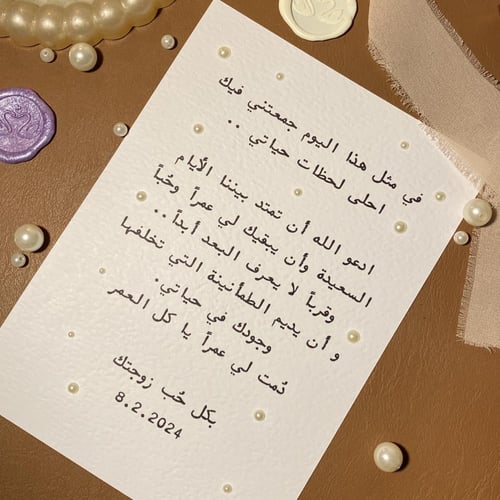 في مثل هذا اليوم جمعتني فيك
احلى لحظات حياتي ..
ادعو الله أن تمتد بيننا الأيام
السعيدة وأن يبقيك لي عمراً وحُباً
وقرباً لا يعرف البعد أبداً ..
و أن يديم الطمأنينة التي تخلفها
وجودك في حياتي.
دُمت لي عمراً يا كل العمر
بكل حُب زوجتك
8.2.2024